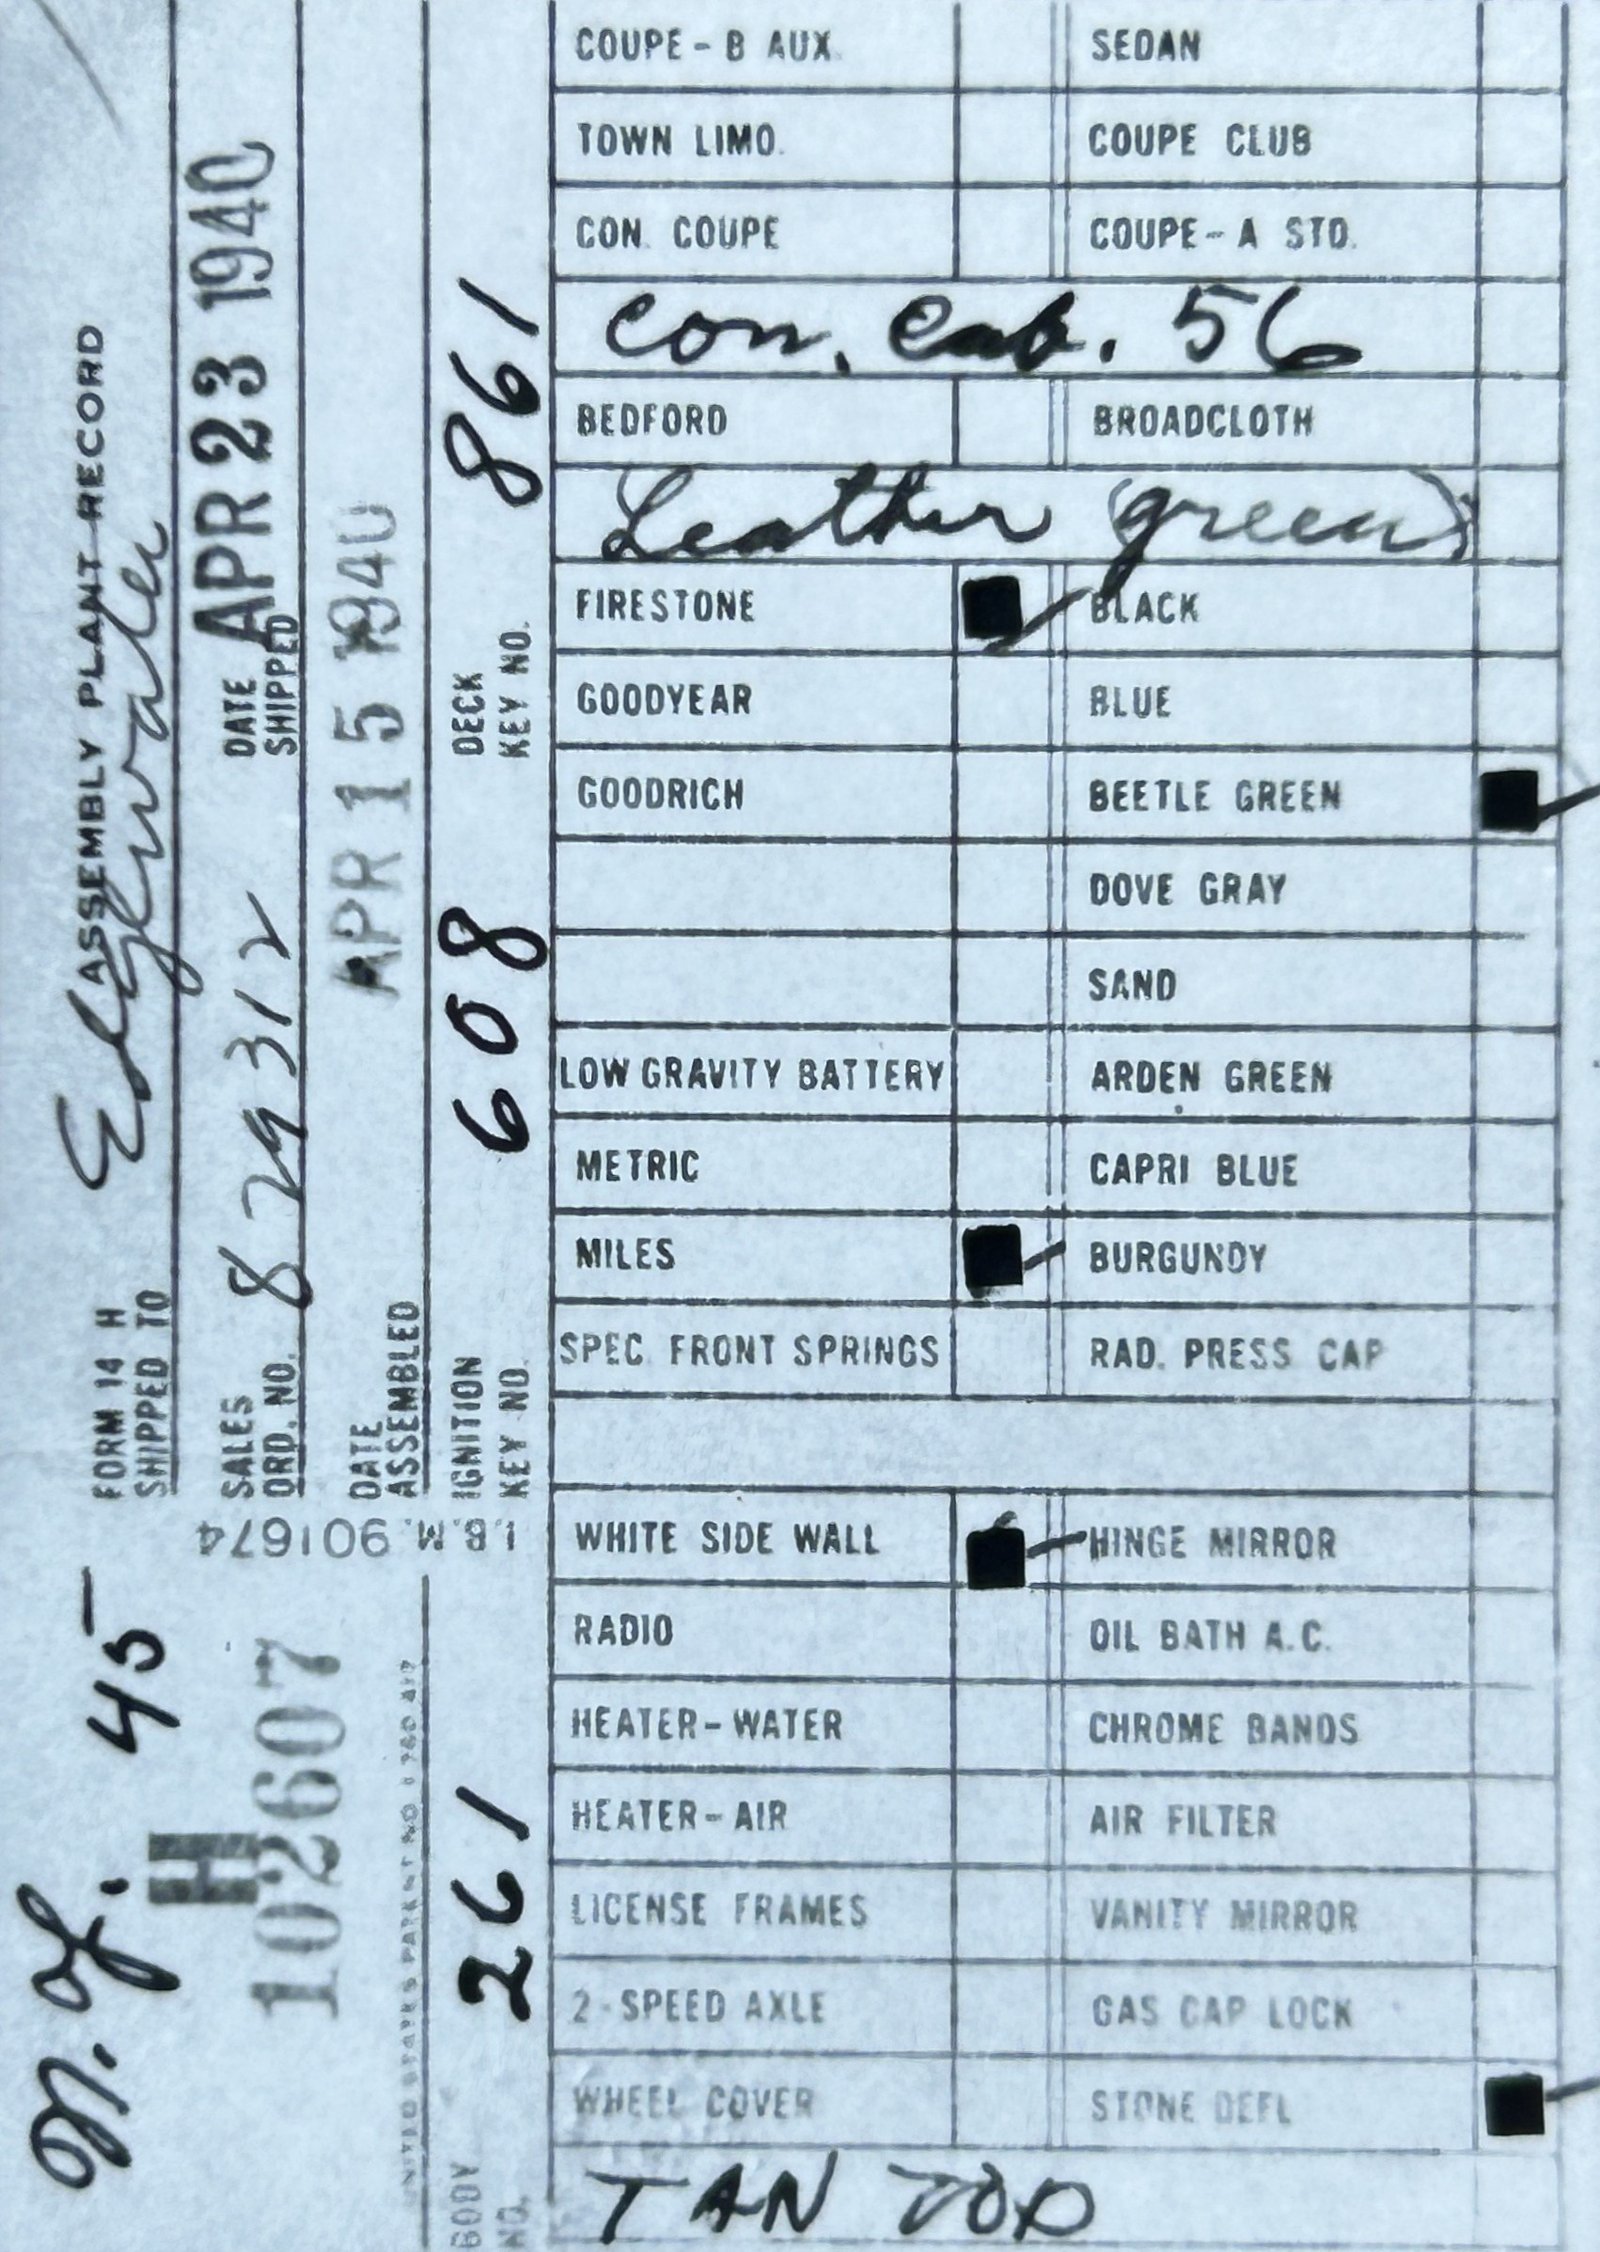 FORM 14 H ASSEMBLY PLANT RECORD
SHIPPED TO Edgwater
SALES ORD. NO. 829312 DATE SHIPPED APR 23 1940
DATE ASSEMBLED APR 15 1940
IGNITION KEY NO. 608 DECK KEY NO. 861
I.B.M. 901674
45
H
102607
BODY NO. 261
COUPE - B AUX. SEDAN
TOWN LIMO. COUPE CLUB
CON. COUPE COUPE - A STD.
Con. Cab. 56
BEDFORD BROADCLOTH
Leather (green)
FIRESTONE BLACK
GOODYEAR BLUE
GOODRICH BEETLE GREEN
DOVE GRAY
SAND
LOW GRAVITY BATTERY ARDEN GREEN
METRIC CAPRI BLUE
MILES BURGUNDY
SPEC. FRONT SPRINGS RAD. PRESS CAP
WHITE SIDE WALL HINGE MIRROR
RADIO OIL BATH A.C.
HEATER - WATER CHROME BANDS
HEATER - AIR AIR FILTER
LICENSE FRAMES VANITY MIRROR
2 - SPEED AXLE GAS CAP LOCK
WHEEL COVER STONE DEFL
TAN TOP